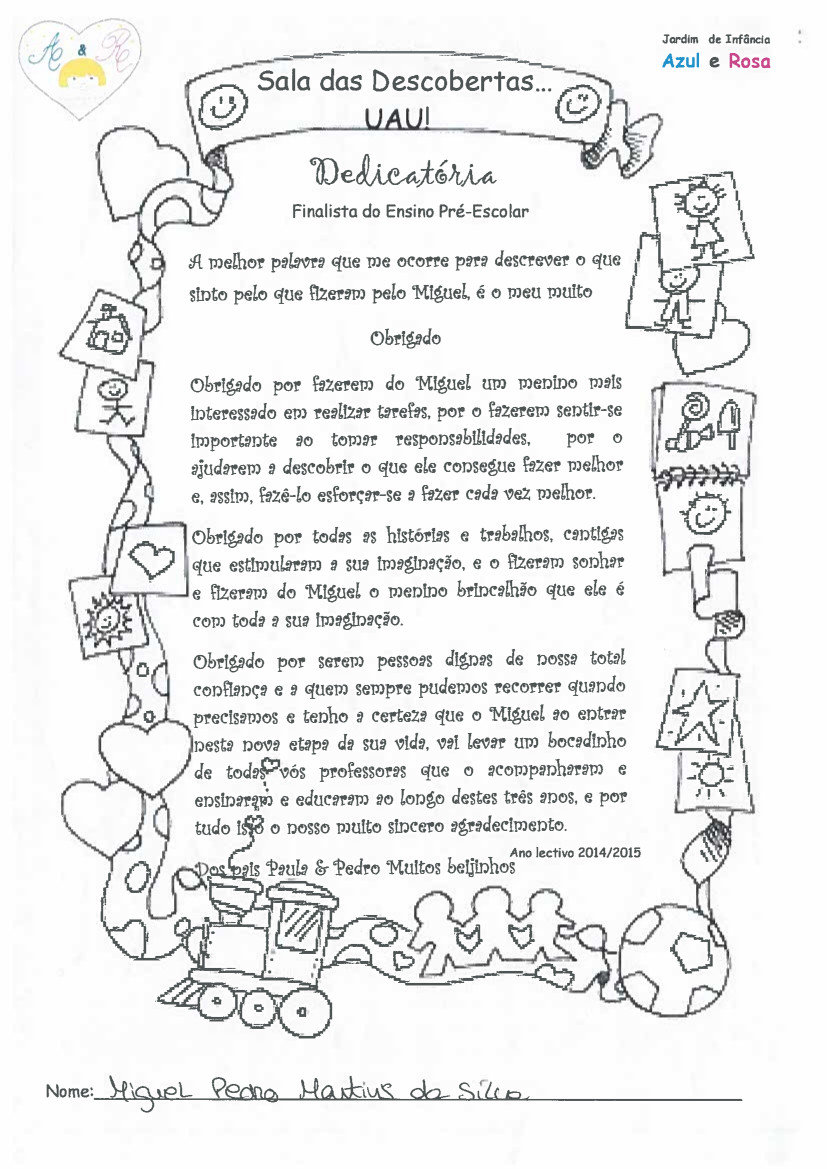 A & R
Jardim de Infância
Azul e Rosa
Sala das Descobertas...
UAU!
Dedicatória
Finalista do Ensino Pré-Escolar
A melhor palavra que me ocorre para descrever o que
sinto pelo que fizeram pelo Miguel, é o meu muito
Obrigado
Obrigado por fazerem do Miguel um menino mais
interessado em realizar tarefas, por o fazerem sentir-se
importante ao tomar responsabilidades, por o
ajudarem a descobrir o que ele consegue fazer melhor
e, assim, fazê-lo esforçar-se a fazer cada vez melhor.
Obrigado por todas as histórias e trabalhos, cantigas
que estimularam a sua imaginação, e o fizeram sonhar
e fizeram do Miguel o menino brincalhão que ele é
com toda a sua imaginação.
Obrigado por serem pessoas dignas de nossa total
confiança e a quem sempre pudemos recorrer quando
precisamos e tenho a certeza que o Miguel ao entrar
nesta nova etapa da sua vida, vai levar um bocadinho
de todas vós professoras que o acompanharam e
ensinaram e educaram ao longo destes três anos, e por
tudo isto o nosso muito sincero agradecimento.
Ano lectivo 2014/2015
Dos pais Paula & Pedro Muitos beijinhos
Nome: Miguel Pedro Martins da Silva